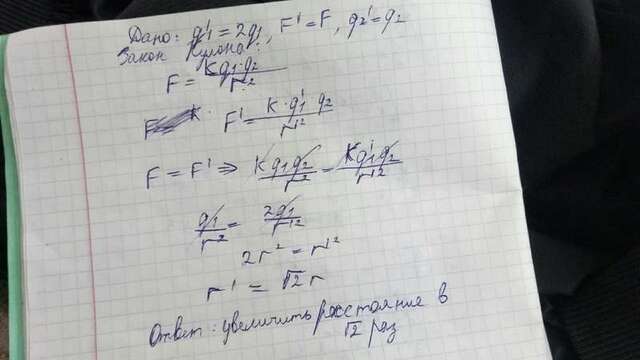 Дано: q₁' = 2q₁, F' = F, q₂' = q₂
Закон Кулона:
F = Kq₁·q₂/r²
F' = K·q₁' q₂/r'²
F = F' ⇒ K q₁q₂/r² = Kq₁'q₂/r'²
q₁/r² = 2q₁/r'²
2r² = r'²
r' = √2 r
Ответ: увеличить расстояние в
√2 раз